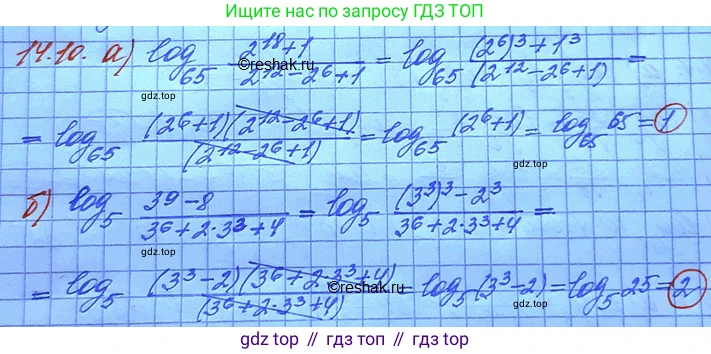 Ищите нас по запросу ГДЗ ТОП
14.10. а) log₆₅ (2¹⁸+1)/(2¹²−2⁶+1) = log₆₅ ((2⁶)³+1³)/(2¹²−2⁶+1) =
©reshak.ru
gdz.top
= log₆₅ ((2⁶+1)(2¹²−2⁶+1))/(2¹²−2⁶+1) = log₆₅ (2⁶+1) = log₆₅ 65 = 1
gdz.top
б) log₅ (39−8)/(3⁶+2·3³+4) = log₅ ((3³)³−2³)/(3⁶+2·3³+4) =
gdz.top
= log₅ ((3³−2)(3⁶+2·3³+4))/(3⁶+2·3³+4) = log₅ (3³−2) = log₅ 25 = 2
©reshak.ru
gdz.top
gdz.top // гдз топ // гдз.топ